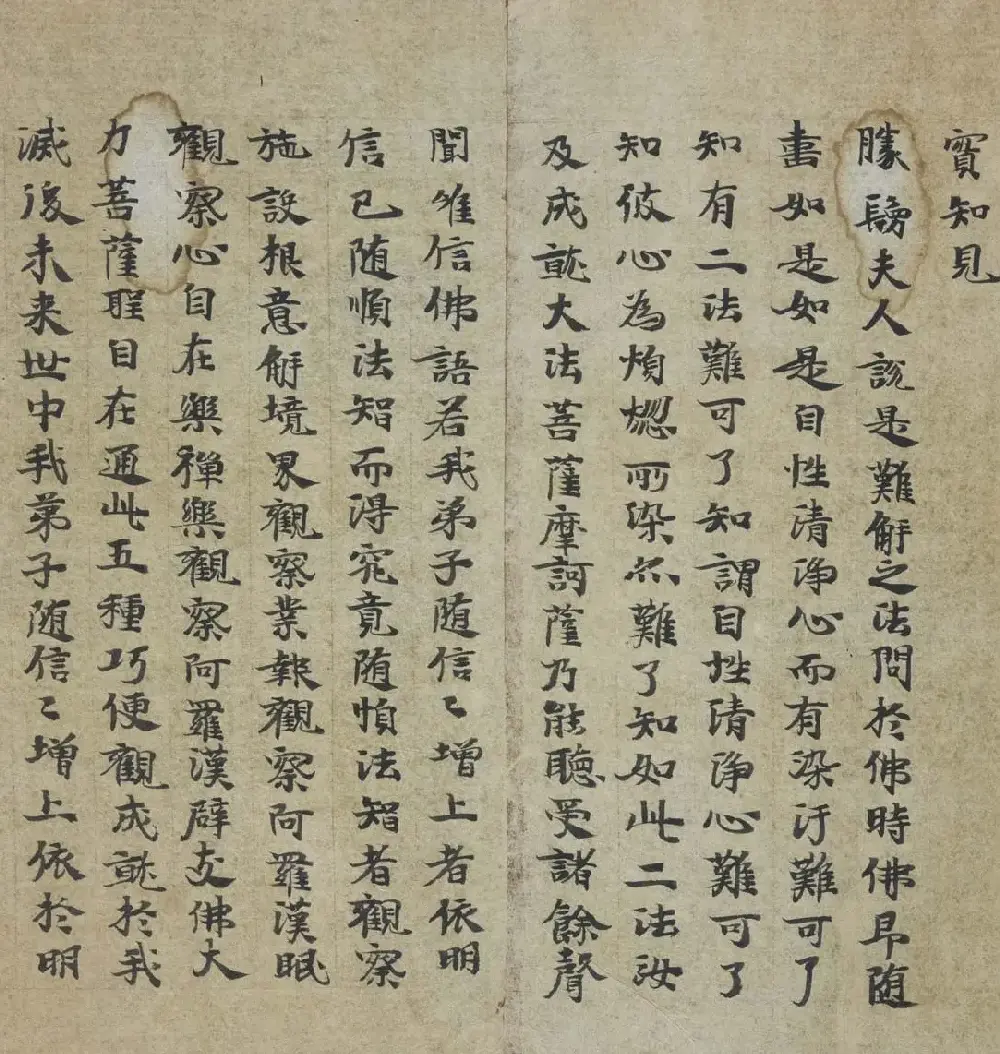 實知見
勝鬘夫人說是難解之法問於佛時佛即随
喜如是如是自性清淨心而有染汙難可了
知有二法難可了知謂自性清淨心難可了
知彼心為煩惱所染亦難了知如此二法汝
及成就大法菩薩摩訶薩乃能聽受諸餘聲
聞唯信佛語若我弟子随信〻增上者依明
信已随順法智而得究竟随順法智者觀察
施設根意解境界觀察業報觀察阿羅漢眠
觀察心自在樂禪樂觀察阿羅漢辟支佛大
力菩薩聖自在通此五種巧便觀成就於我
滅後未来世中我弟子随信〻增上依於明